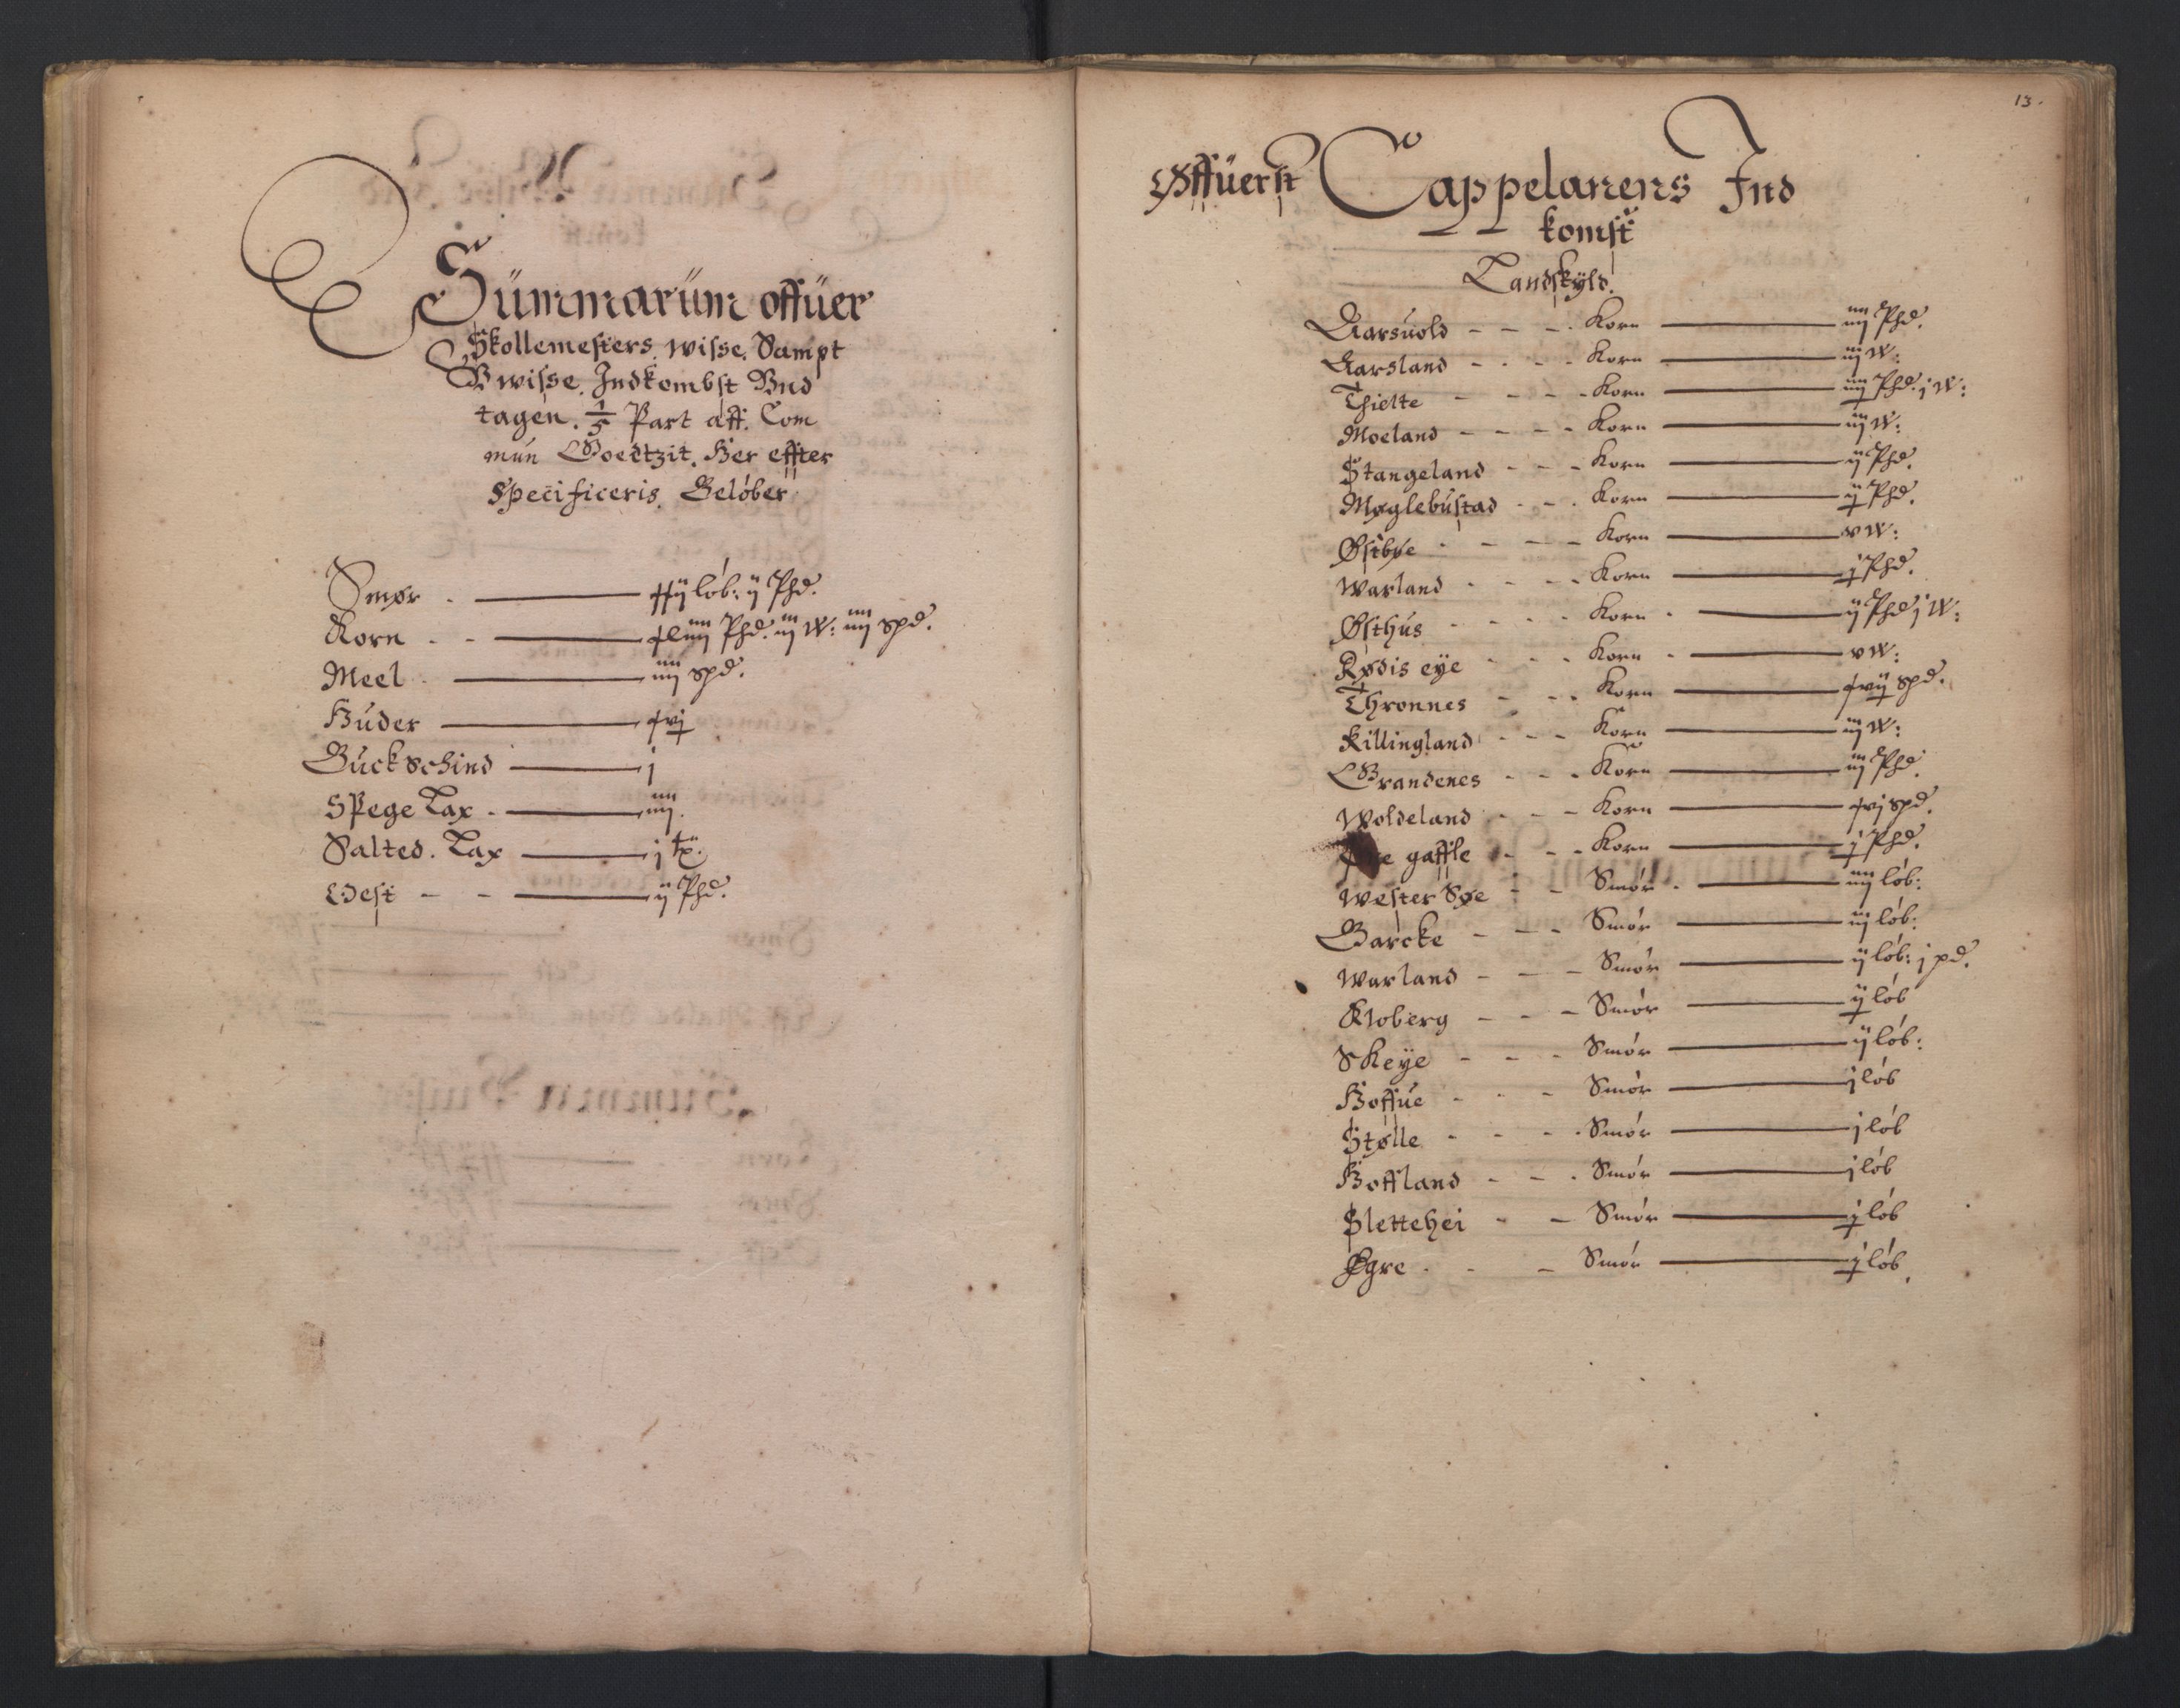 Summarum offuer
Skollemesters. wisse. Sampt
Vwisse. Indkombst Vnd
tagen. 1/5 Part aff. Com
mun Goedtzit. Her effter
Specificeris. Belöber
Smør - xxij löb: ij Phd.
Korn - - xliiij Phd. iij W: iiij spd.
Meel - iiij spd.
Huder xvj
Buckschind j
SPege Lax - iiij.
Salted. Lax j tø.
Oest - - ij Phd.
13.
Offuerst Cappelanens Ind
komst
Landskyld.
Aarsuold - - - Korn iiij Phd.
Aarsland - - - - Korn iij W:
Thielte - - - - Korn iiij Phd. j W:
Moeland - - - - Korn iij W:
Stangeland - - - Korn ij Phd.
Møglebustad - - - Korn ij Phd.
Østbye - - - - Korn v W:
Warland - - - - Korn j Phd.
Østhus - - - - Korn - ij Phd j W:
Rødis eye - - - Korn - v W:
Thronnes - - - Korn xvij spd.
Killingland - - - Korn iij W:
Brandenes - - - Korn iij Phd.
Woldeland - - - Korn xvj spd.
gaffle - - - Korn j Phd.
Wester Søe - - Smör - iiij löb:
Barcke - - - Smör iij löb:
Warland - - - Smör ij löb: j pd.
Kloberg - - - Smör ij löb
SKeye - - - Smör ij löb:
Hoffue - - - Smör j löb
Stølle - - - Smör j löb
Hoffland - - - Smör j löb
Slettehei - - Smör j löb
Egre - - - Smör j löb.